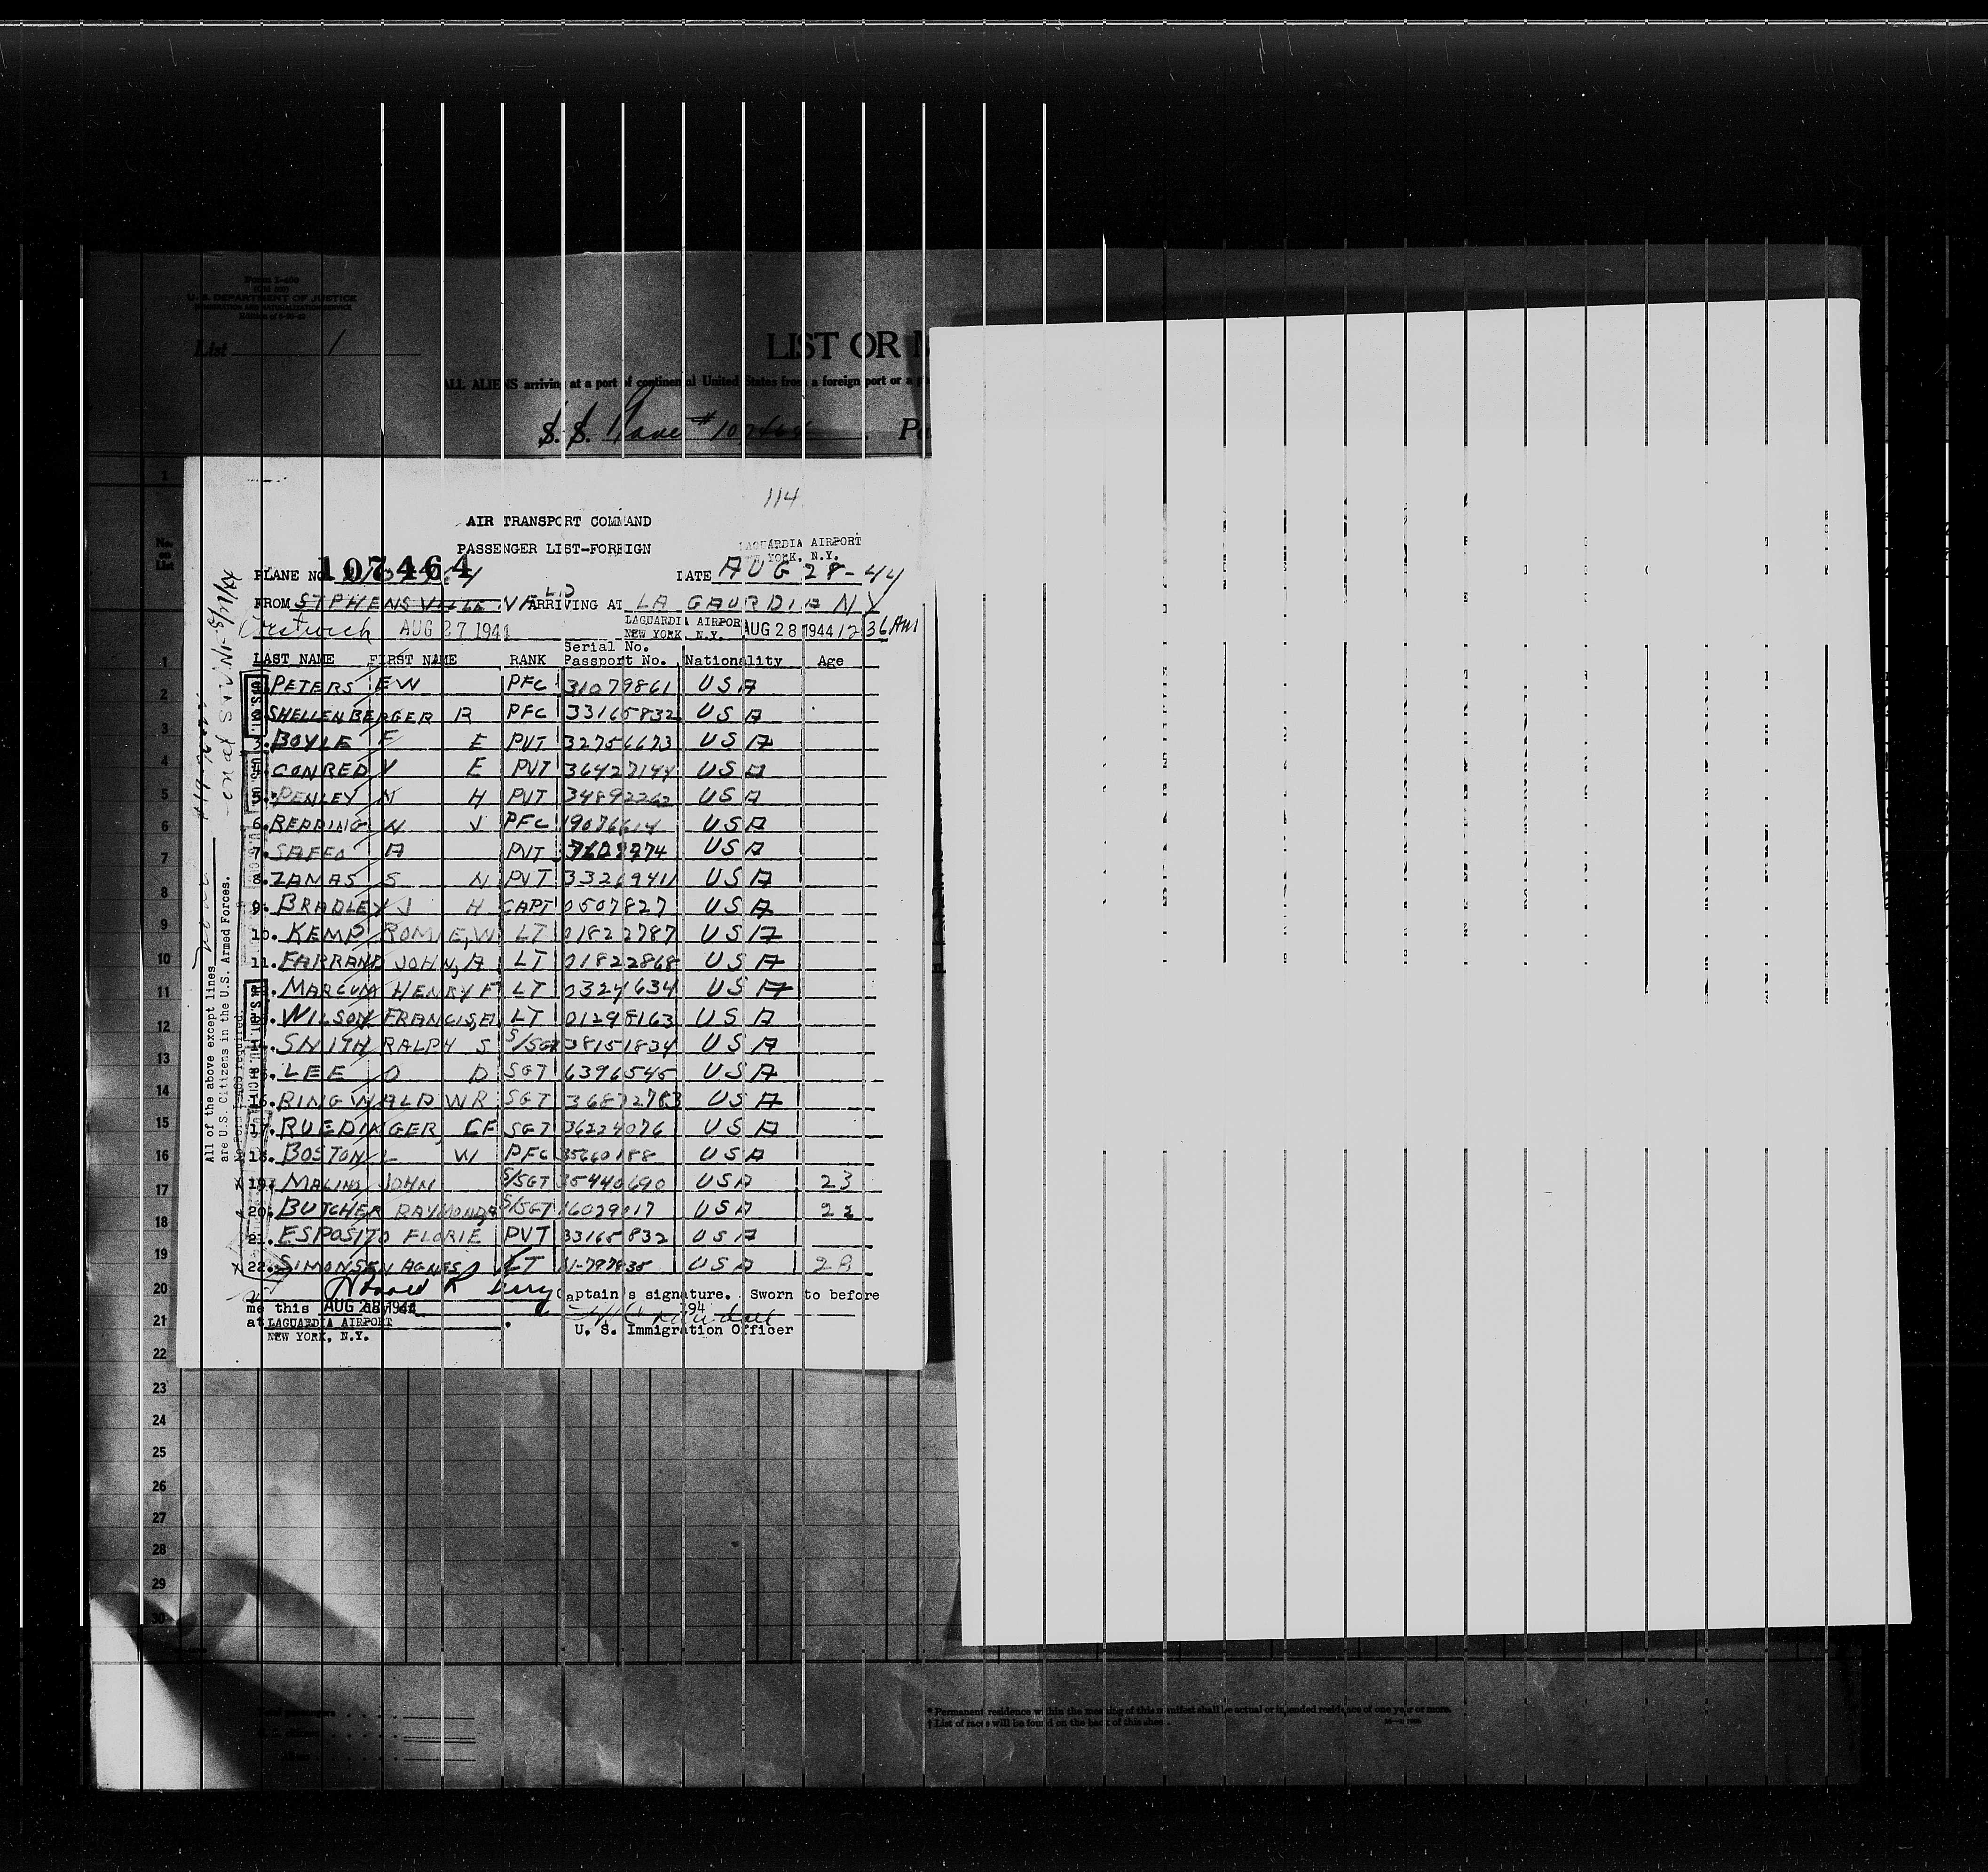 Form I-400
U. S. DEPARTMENT OF JUSTICE
IMMIGRATION AND NATURALIZATION SERVICE
List 1
LIST OR
ALL ALIENS arriving at a port of continental United States from a foreign port or a
S. S. Plane # 107464
114
AIR TRANSPORT COMMAND
PASSENGER LIST-FOREIGN
LAGUARDIA AIRPORT
NEW YORK, N.Y.
PLANE NO 107464 DATE AUG 28-44
FROM STPHENSVILLE NFLD ARRIVING AT LA GAURDIA NY
AUG 27 1944 LAGUARDIA AIRPORT NEW YORK, N.Y. AUG 28 1944 12 36 AM
LAST NAME FIRST NAME RANK Serial No. Passport No. Nationality Age
1. PETERS E W PFC 31079861 USA
2. SHELLENBERGER R PFC 33165832 USA
3. BOYLE F E PVT 32756673 USA
4. CONRED V E PVT 36427144 USA
5. PENLEY N H PVT 34892262 USA
6. REDDING W J PFC 19076614 USA
7. SAFEO A PVT USA
8. ZAMAS S N PVT 33269411 USA
9. BRADLEY J H CAPT 0507827 USA
10. KEMP ROMIE, W LT 01822787 USA
11. FARRAND JOHN, A LT 01822868 USA
12. MARCUM HENRY F LT 0324634 USA
13. WILSON FRANCIS, A LT 01298163 USA
14. SMITH RALPH S S/SGT 38151834 USA
15. LEE O D SGT 6396545 USA
16. RINGWALD W R SGT 36872783 USA
17. RUEDINGER, C F SGT 36224076 USA
18. BOSTON L W PFC 35660188 USA
X 19. MALINS JOHN S/SGT 35440690 USA 23
20. BUTCHER RAYMOND S/SGT 16029017 USA 22
21. ESPOSITO FLORIE PVT 33165832 USA
X 22. SIMONSEN AGNES LT N-797835 USA 28
Captain's signature. Sworn to before
me this AUG 28 1944 day of 194
at LAGUARDIA AIRPORT
NEW YORK, N.Y.
U. S. Immigration Officer
All of the above except lines none
are U.S. Citizens in the U.S. Armed Forces.
No Form I-466 required.
No. on List
1
2
3
4
5
6
7
8
9
10
11
12
13
14
15
16
17
18
19
20
21
22
23
24
25
26
27
28
29
30
* Permanent residence within the meaning of this manifest shall be actual or intended residence of one year or more.
† List of races will be found on the back of this sheet.